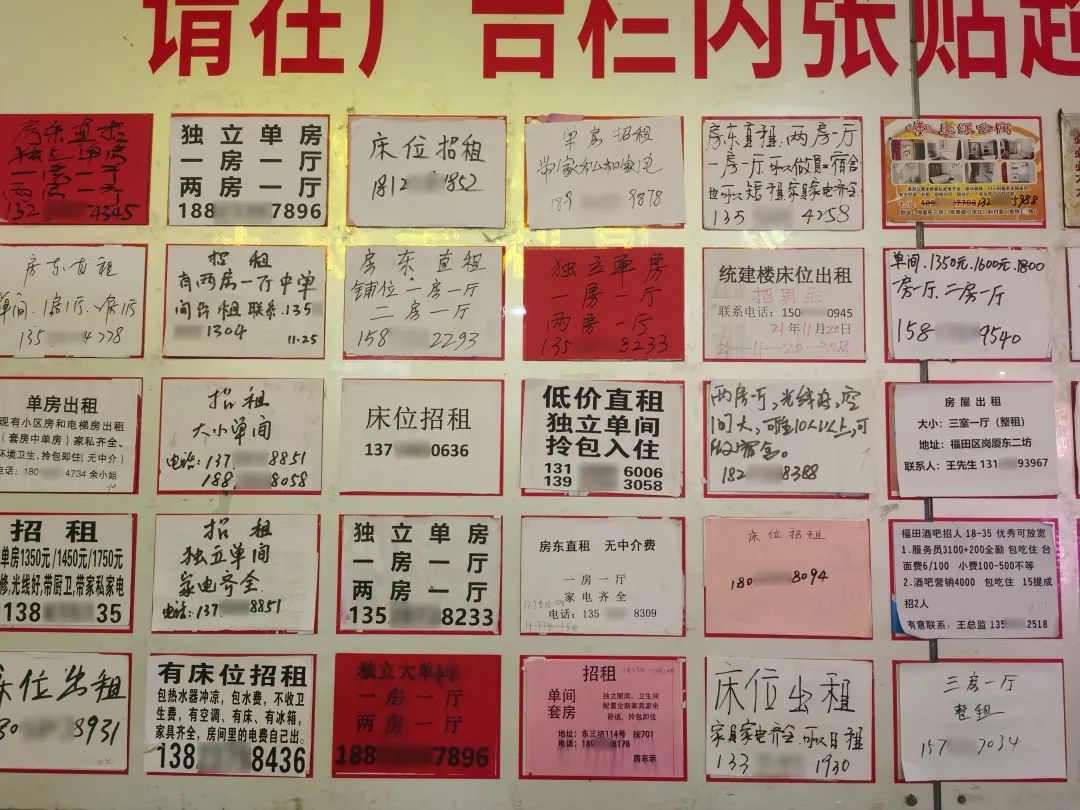 请在广告栏内张贴超
房东直招
独立单房
一房一厅
两房一厅
132 4345
独立单房
一房一厅
两房一厅
188 7896
床位招租
1812 852
单房招租
带家私和家电
189 9878
房东直租，两房一厅
一房一厅，可以做员工宿舍
也可以短租家具家电齐全
135 4258
189 17708 132 5988
房东直租
单间、1房1厅、2房1厅
135 4778
招租
有两房一厅中单
间台租 联系：135
1304 11.25
房东直租
铺位一房一厅
二房一厅
158 2293
独立单房
一房一厅
两房一厅
135 8233
统建楼床位出租
招男生
联系电话：150 0945
21年11月20日
21-11-20-30号
单间.1350元.1600元.1800
一房一厅.二房一厅
158 9540
单房出租
现有小区房和电梯房出租
（套房中单房）家私齐全、
环境卫生、拎包即住（无中介）
电话：180 4734 余小姐
招租
大小单间
电话：137 8851
188 8058
床位招租
137 0636
低价直租
独立单间
拎包入住
131 6006
139 3058
两房一厅，光线好，空
间大，可住10人以上，可
做宿舍。
182 8388
房屋出租
大小：三室一厅（整租）
地址：福田区岗厦东二坊
联系人：王先生 131 93967
招租
单房1350元/1450元/1750元
修,光线好,带厨卫,带家私家电
138 35
招租
独立单间
家电齐全.
电话：137 8851
独立单房
一房一厅
两房一厅
135 8233
房东直租 无中介费
一房一厅
家电齐全
电话：135 8309
床位招租
180 8094
福田酒吧招人 18-35 优秀可放宽
1.服务员3100+200全勤 包吃住 台
面费6/100 小费100-500不等
2.酒吧营销4000 包吃住 15提成
招2人
有意联系：王总监 135 2518
床位出租
130 8931
有床位招租
包热水器冲凉，包水费，不收卫
生费，有空调、有床、有冰箱，
家具齐全，房间里的电费自己出。
138 8436
独立大单间
一房一厅
两房一厅
188 7896
招租
单间
套房
独立厨房、卫生间
配置全新家具家电
舒适，拎包即住
地址：东三坊114号 按701
电话：189 8178
房东示
床位出租
家具家电齐全，可以日租
133 1930
三房一厅
整租
157 7034